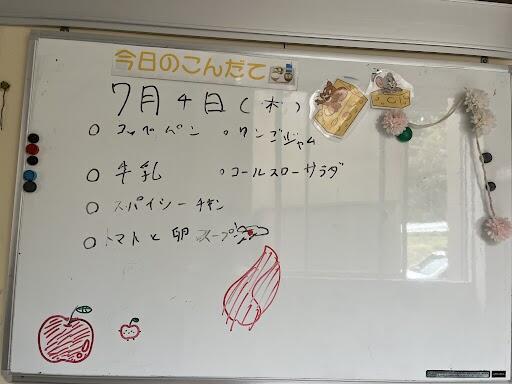 今日のこんだて
7月4日(木)
○ コッペパン ○リンゴジャム
○ 牛乳 ○コールスローサラダ
○ スパイシーチキン
○ トマトと卵スープ